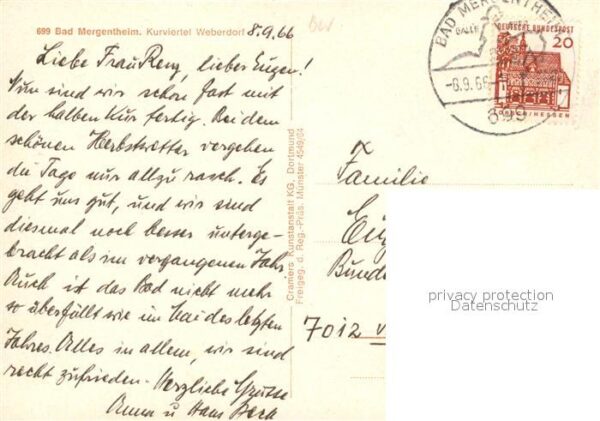 699 Bad Mergentheim. Kurviertel Weberdorf
8.9.66
Liebe Frau Renz, lieber Eugen!
Nun sind wir schon fast mit
der halben Kur fertig. Bei dem
schönen Herbstwetter vergehen
die Tage nur allzu rasch. Es
geht uns gut, und wir sind
diesmal noch besser unterge-
bracht als im vergangenen Jahr
Auch ist das Bad nicht mehr
so überfüllt wie im Mai des letzten
Jahres. Alles in allem, wir sind
recht zufrieden. Herzliche Grüsse
Anna u Hans Beck
Cramers Kunstanstalt KG, Dortmund
Freigeg. d. Reg.-Präs. Münster 4549/64
BAD MERGENTHEIM
-8.9.66
DEUTSCHE BUNDESPOST
20
LORSCH/HESSEN
Familie
Eug
Bunde
7012
privacy protection
Datenschutz